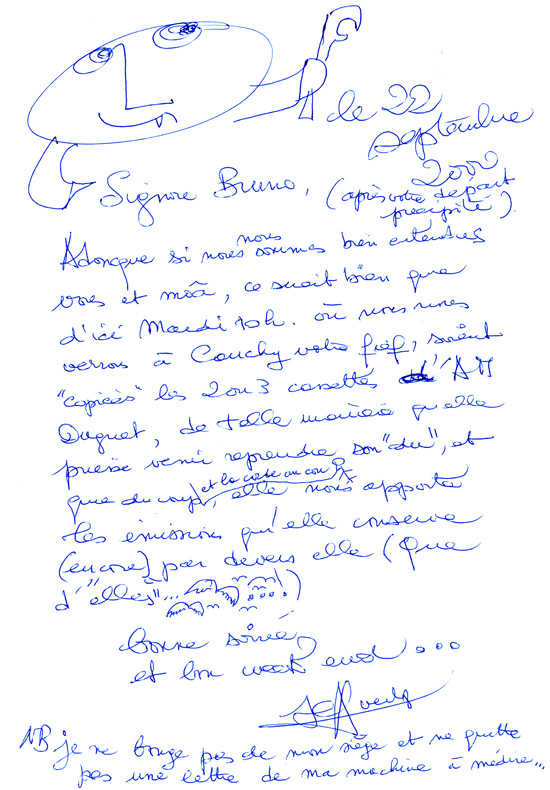 le 22
septembre
2000
Signore Bruno, (après votre départ
précipité).
Adonque si nous nous sommes bien entendus
vous et moâ, ce serait bien que
d'ici Mardi 10h. où nous nous
verrons à Couchy votre fief, soient
"copiées" les 2 ou 3 cassettes d'AM
Duguet, de telle manière qu'elle
puisse venir reprendre son "du", et
que du coup, et la corde au cou, elle nous apporte
les émissions qu'elle conserve
(encore) par devers elle (Que
d'"elles"...)
bonne soirée,
et bon week end...
NB je ne bouge pas de mon siège et ne quitte
pas une lettre de ma machine à médire...